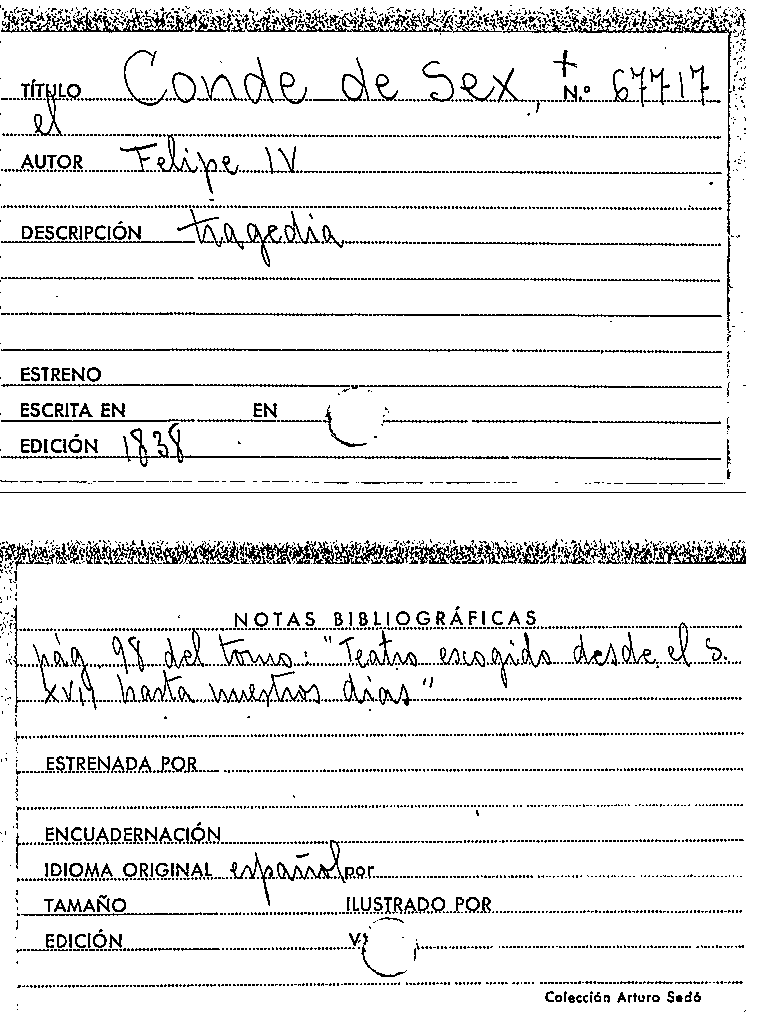 TÍTULO Conde de Sex, + N.º 67717
el
AUTOR Felipe IV
DESCRIPCIÓN tragedia
ESTRENO
ESCRITA EN EN
EDICIÓN 1838
NOTAS BIBLIOGRÁFICAS
pág. 98 del tomo: "Teatro escogido desde el s.
XVII hasta nuestros dias"
ESTRENADA POR
ENCUADERNACIÓN
IDIOMA ORIGINAL español por
TAMAÑO ILUSTRADO POR
EDICIÓN
Colección Arturo Sedó